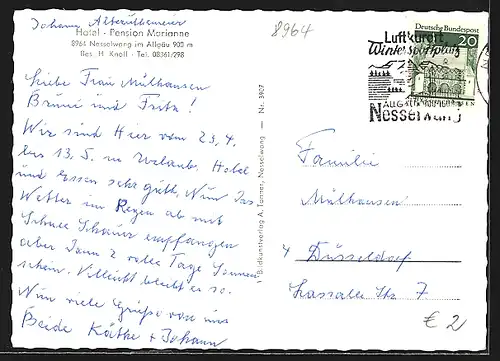 Johann
Hotel - Pension Marianne
8964 Nesselwang im Allgäu 900 m
Bes. H. Knoll - Tel. 08361/298
8964
Deutsche Bundespost
20
Luftkurort
Wintersportplatz
ALLGÄU
Nesselwang
Liebe Frau Mülhausen
Bruni und Fritz!
Wir sind Hier vom 23,4.
bis 13,5. in Urlaub. Hotel
und Essen sehr gutt. Nun das
Wetter im Regen ab mit
Schnee Schauer empfangen
aber Dann 2 volle Tage Sonnen
schein. Villeicht bleibt es so.
Nun viele Grüße von uns
Beide Käthe + Johann
Bildkunstverlag A. Tanner, Nesselwang — Nr. 3907
Familie
Mülhausen
4 Düsseldorf
Lassalle Str 7
€ 2